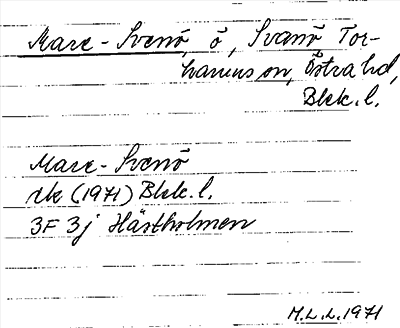 Mare-Svenö, ö, Svanö Tor-
hamns sn, Östra hd,
Blek. l.
Mare-Svenö
rek (1971) Blek. l.
3F 3j Hästholmen
M.L.L. 1971